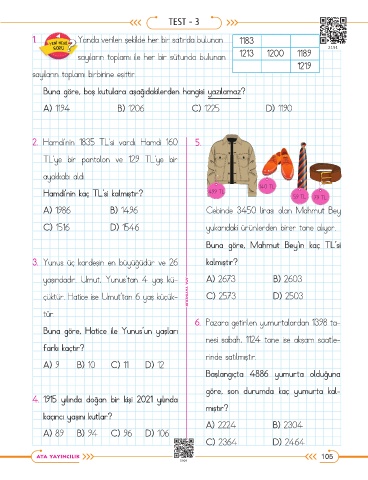 TEST - 3
1. Yanda verilen şekilde her bir satırda bulunan
YENİ NESİL SORU
sayıların toplamı ile her bir sütunda bulunan
sayıların toplamı birbirine eşittir.
1183
1213 1200 1189
1219
Buna göre, boş kutulara aşağıdakilerden hangisi yazılamaz?
A) 1194 B) 1206 C) 1225 D) 1190
2. Hamdi'nin 1835 TL'si vardı. Hamdi 160
TL'ye bir pantolon ve 129 TL'ye bir
ayakkabı aldı.
Hamdi'nin kaç TL'si kalmıştır?
A) 1986 B) 1496
C) 1516 D) 1546
3. Yunus üç kardeşin en büyüğüdür ve 26
yaşındadır. Umut, Yunus'tan 4 yaş kü-
çüktür. Hatice ise Umut'tan 6 yaş küçük-
tür.
Buna göre, Hatice ile Yunus'un yaşları
farkı kaçtır?
A) 9 B) 10 C) 11 D) 12
4. 1915 yılında doğan bir kişi 2021 yılında
kaçıncı yaşını kutlar?
A) 89 B) 94 C) 96 D) 106
5.
Cebinde 3450 lirası olan Mahmut Bey
yukarıdaki ürünlerden birer tane alıyor.
Buna göre, Mahmut Bey'in kaç TL'si
kalmıştır?
A) 2673 B) 2603
C) 2573 D) 2503
6. Pazara getirilen yumurtalardan 1398 ta-
nesi sabah, 1124 tane ise akşam saatle-
rinde satılmıştır.
Başlangıçta 4886 yumurta olduğuna
göre, son durumda kaç yumurta kal-
mıştır?
A) 2224 B) 2304
C) 2364 D) 2464
ATA YAYINCILIK
105